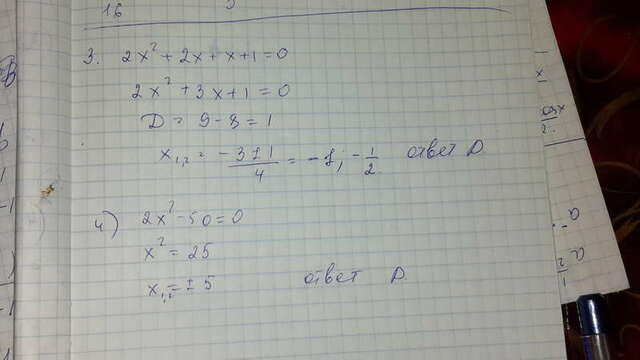 16
3. 2x² + 2x + x + 1 = 0
2x² + 3x + 1 = 0
D = 9 - 8 = 1
x₁,₂ = (-3 ± 1)/4 = -1; -1/2 ответ D
4) 2x² - 50 = 0
x² = 25
x₁,₂ = ± 5 ответ D